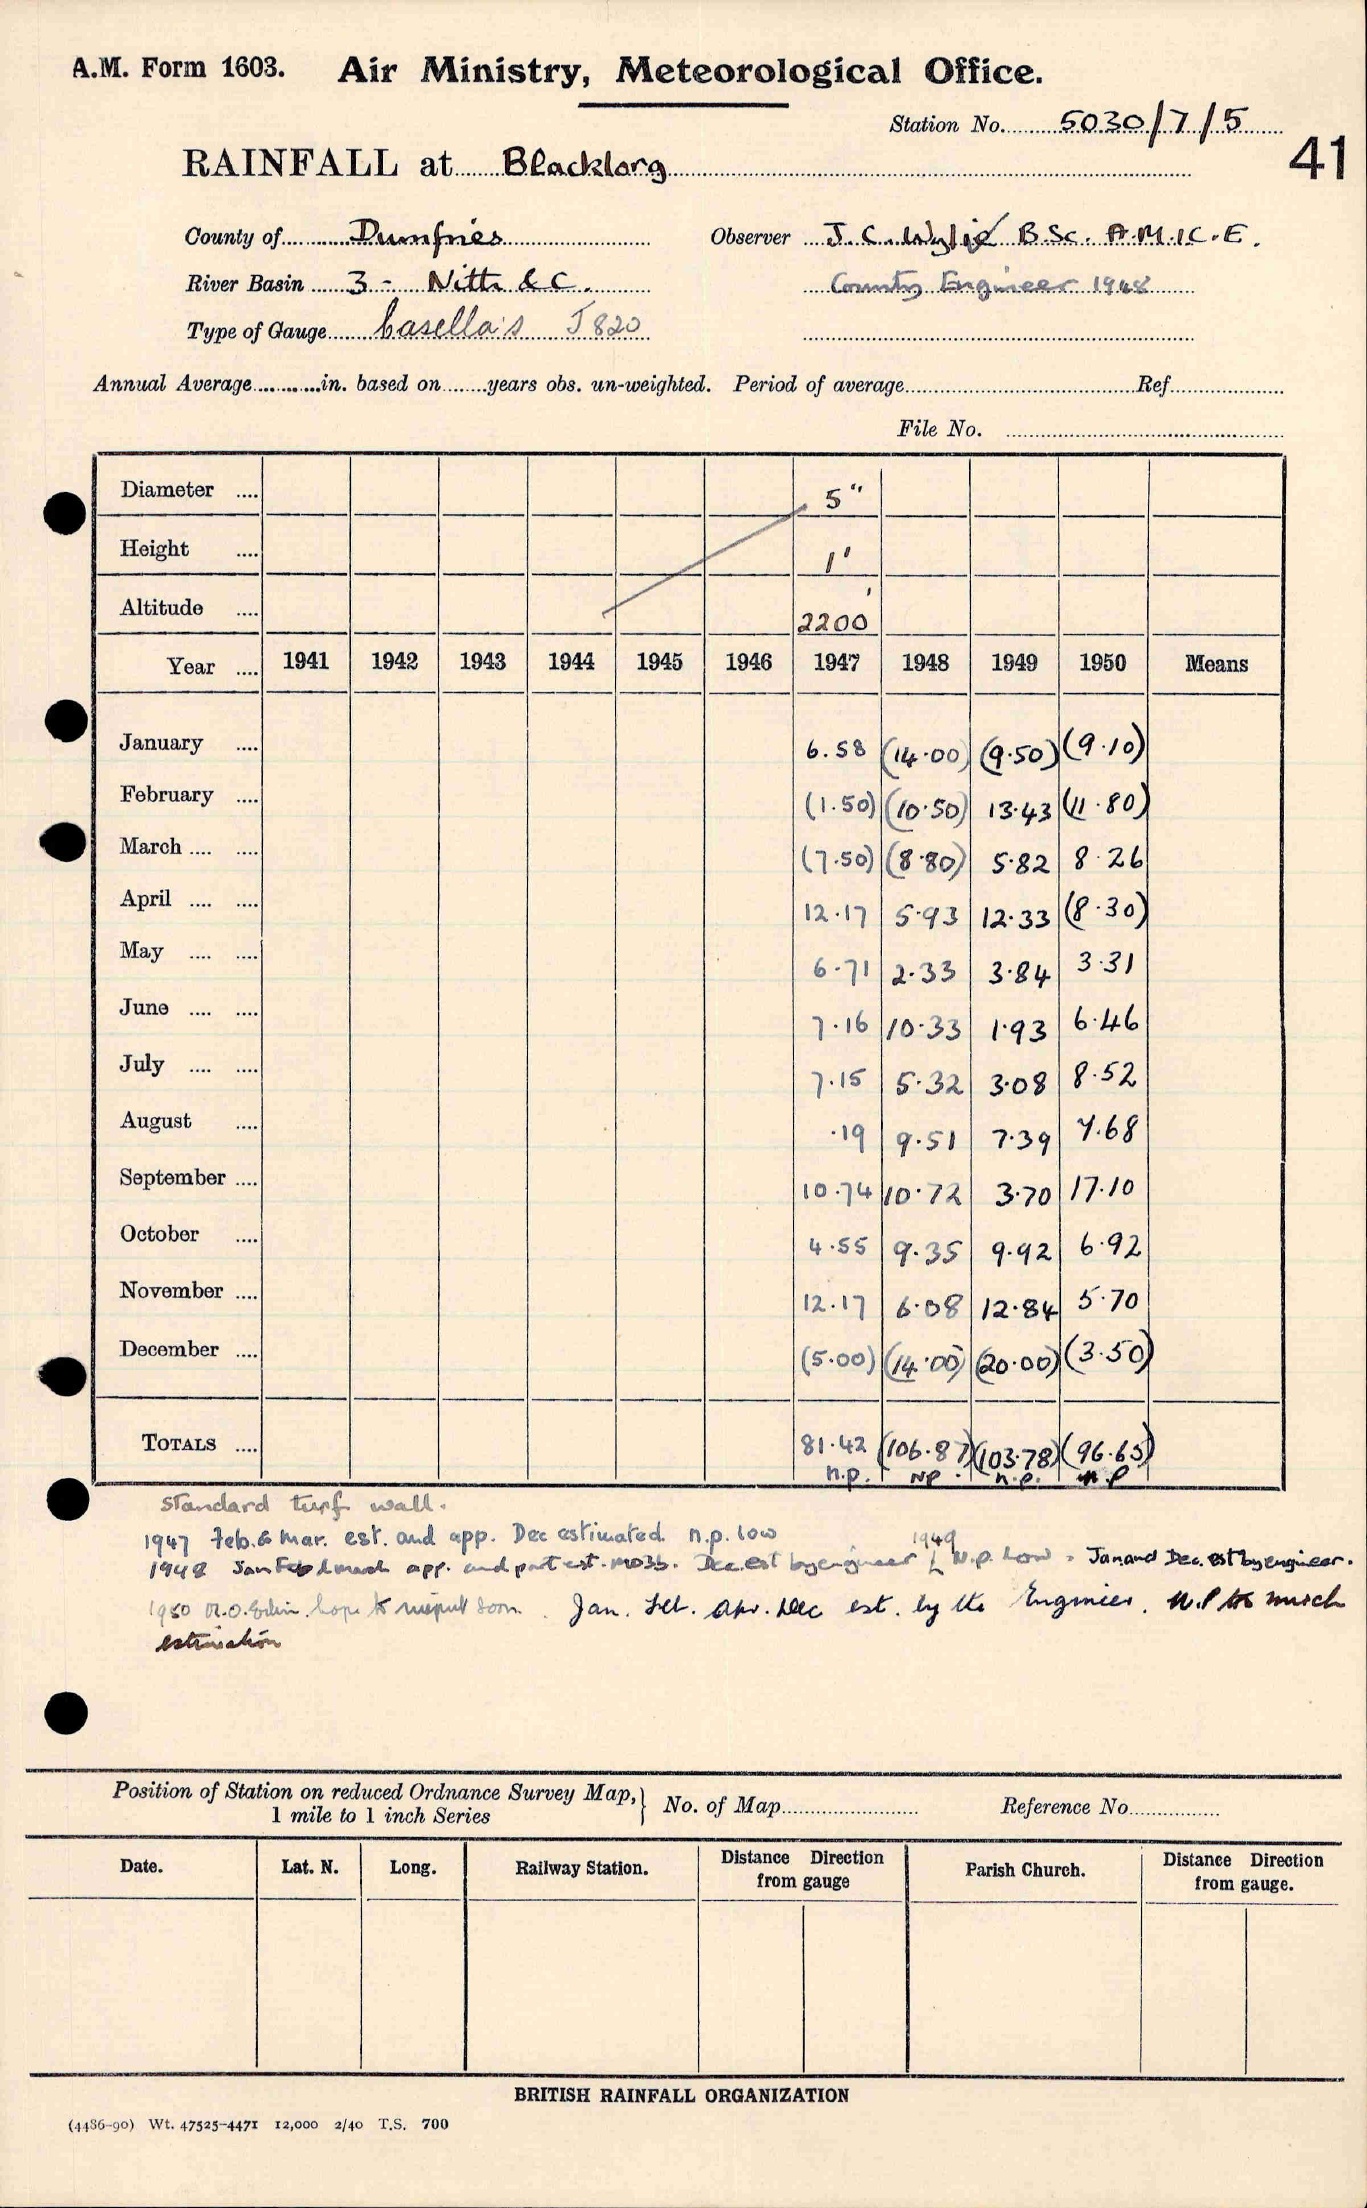 A.M. Form 1603. Air Ministry, Meteorological Office.
Station No. 5030/7/5
41
RAINFALL at Blacklorg
County of Dumfries Observer J.C. Wylie B.Sc. A.M.I.C.E.
River Basin 3 - Nith &c. County Engineer 1948
Type of Gauge Casella's J820
Annual Average in. based on years obs. un-weighted. Period of average Ref
File No.
Diameter 5"
Height 1'
Altitude 2200'
Year 1941 1942 1943 1944 1945 1946 1947 1948 1949 1950 Means
January 6.58 (14.00) (9.50) (9.10)
February (1.50) (10.50) 13.43 (11.80)
March (7.50) (8.80) 5.82 8.26
April 12.17 5.93 12.33 (8.30)
May 6.71 2.33 3.84 3.31
June 7.16 10.33 1.93 6.46
July 7.15 5.32 3.08 8.52
August .19 9.51 7.39 7.68
September 10.74 10.72 3.70 17.10
October 4.55 9.35 9.92 6.92
November 12.17 6.08 12.84 5.70
December (5.00) (14.00) (20.00) (3.50)
TOTALS 81.42 (106.87) (103.78) (96.65)
n.p. NP. n.p. n.p
Standard turf wall.
1947 Feb. & Mar. est. and app. Dec estimated. n.p. low
1948 Jan Feb & march app. and part est. Dec. est by engineer 1949 N.p. low. Jan and Dec. est by engineer.
1950 M.O. Edin. hope to soon. Jan. Feb. Apr. Dec est. by the Engineer. N.P too much
estimation
Position of Station on reduced Ordnance Survey Map,
1 mile to 1 inch Series
No. of Map Reference No.
Date. Lat. N. Long. Railway Station. Distance Direction from gauge Parish Church. Distance Direction from gauge.
BRITISH RAINFALL ORGANIZATION
(4486-90) Wt. 47525-4471 12,000 2/40 T.S. 700